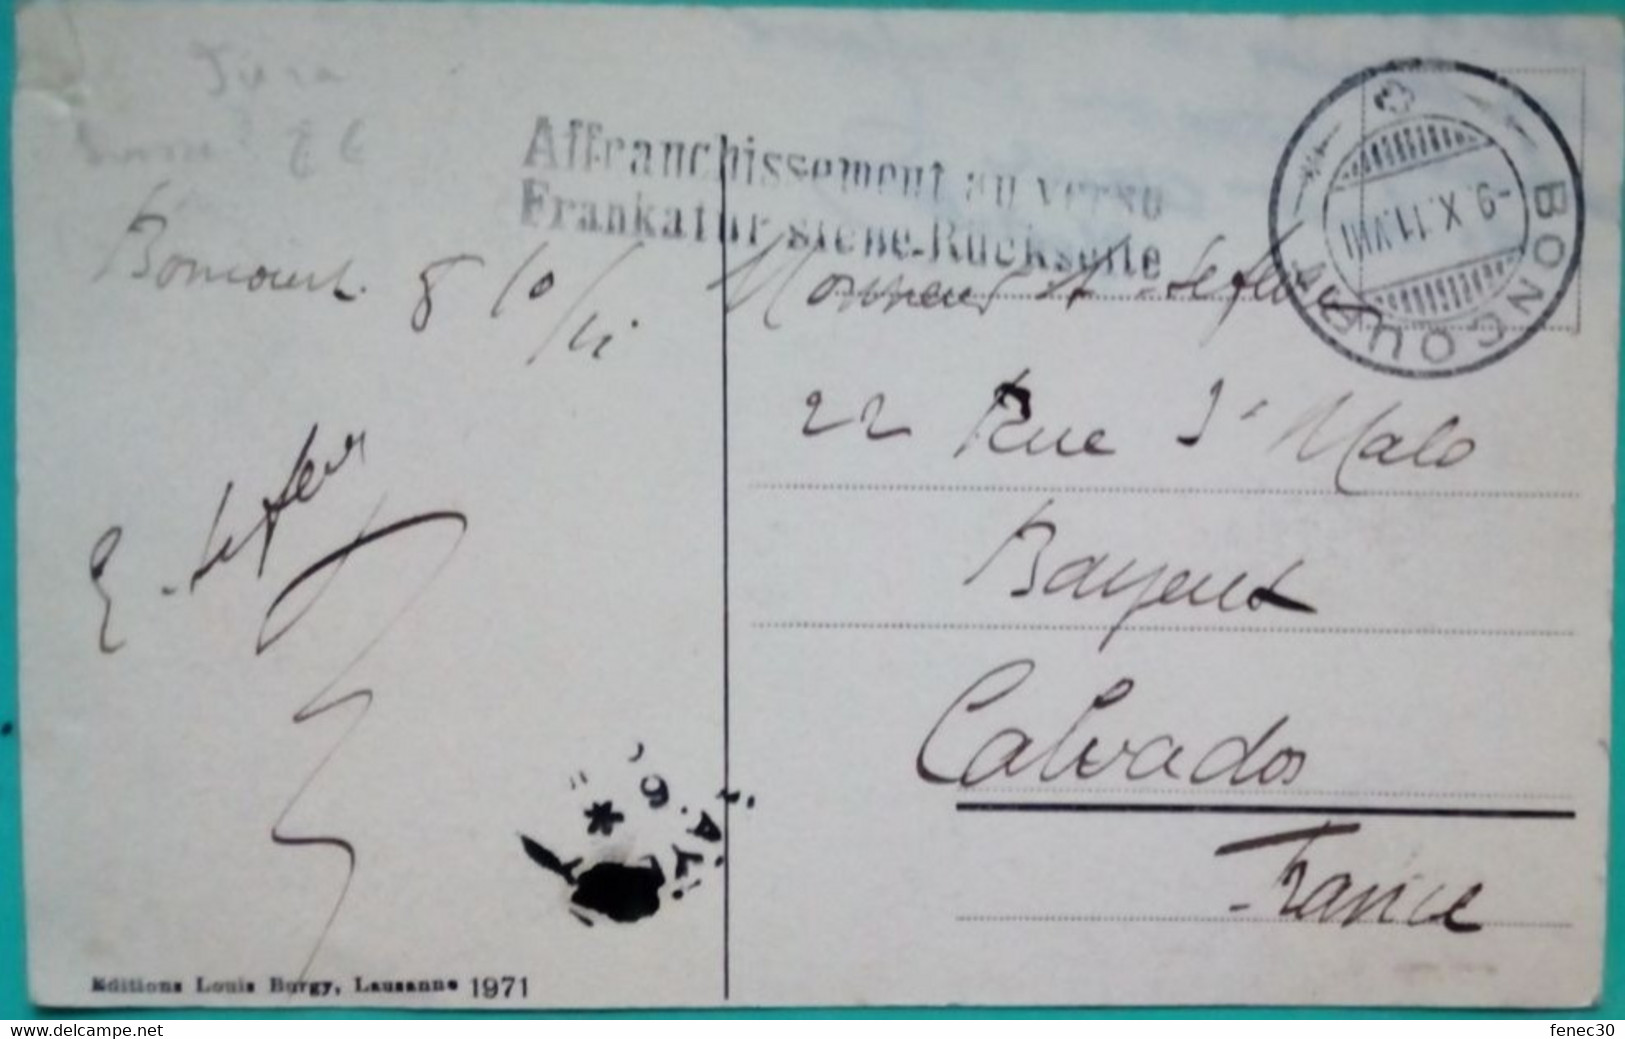 Jura
6€
Affranchissement au verso
Frankatur siehe Rückseite
BONCOURT
-9.X.11.VIII
Boncourt. 8 10/11
Monsieur A Lefeuvre
22 Rue St Malo
Bayeux
Calvados
France
E. Lefeuvre
Editions Louis Burgy, Lausanne 1971
www.delcampe.net
fenec30